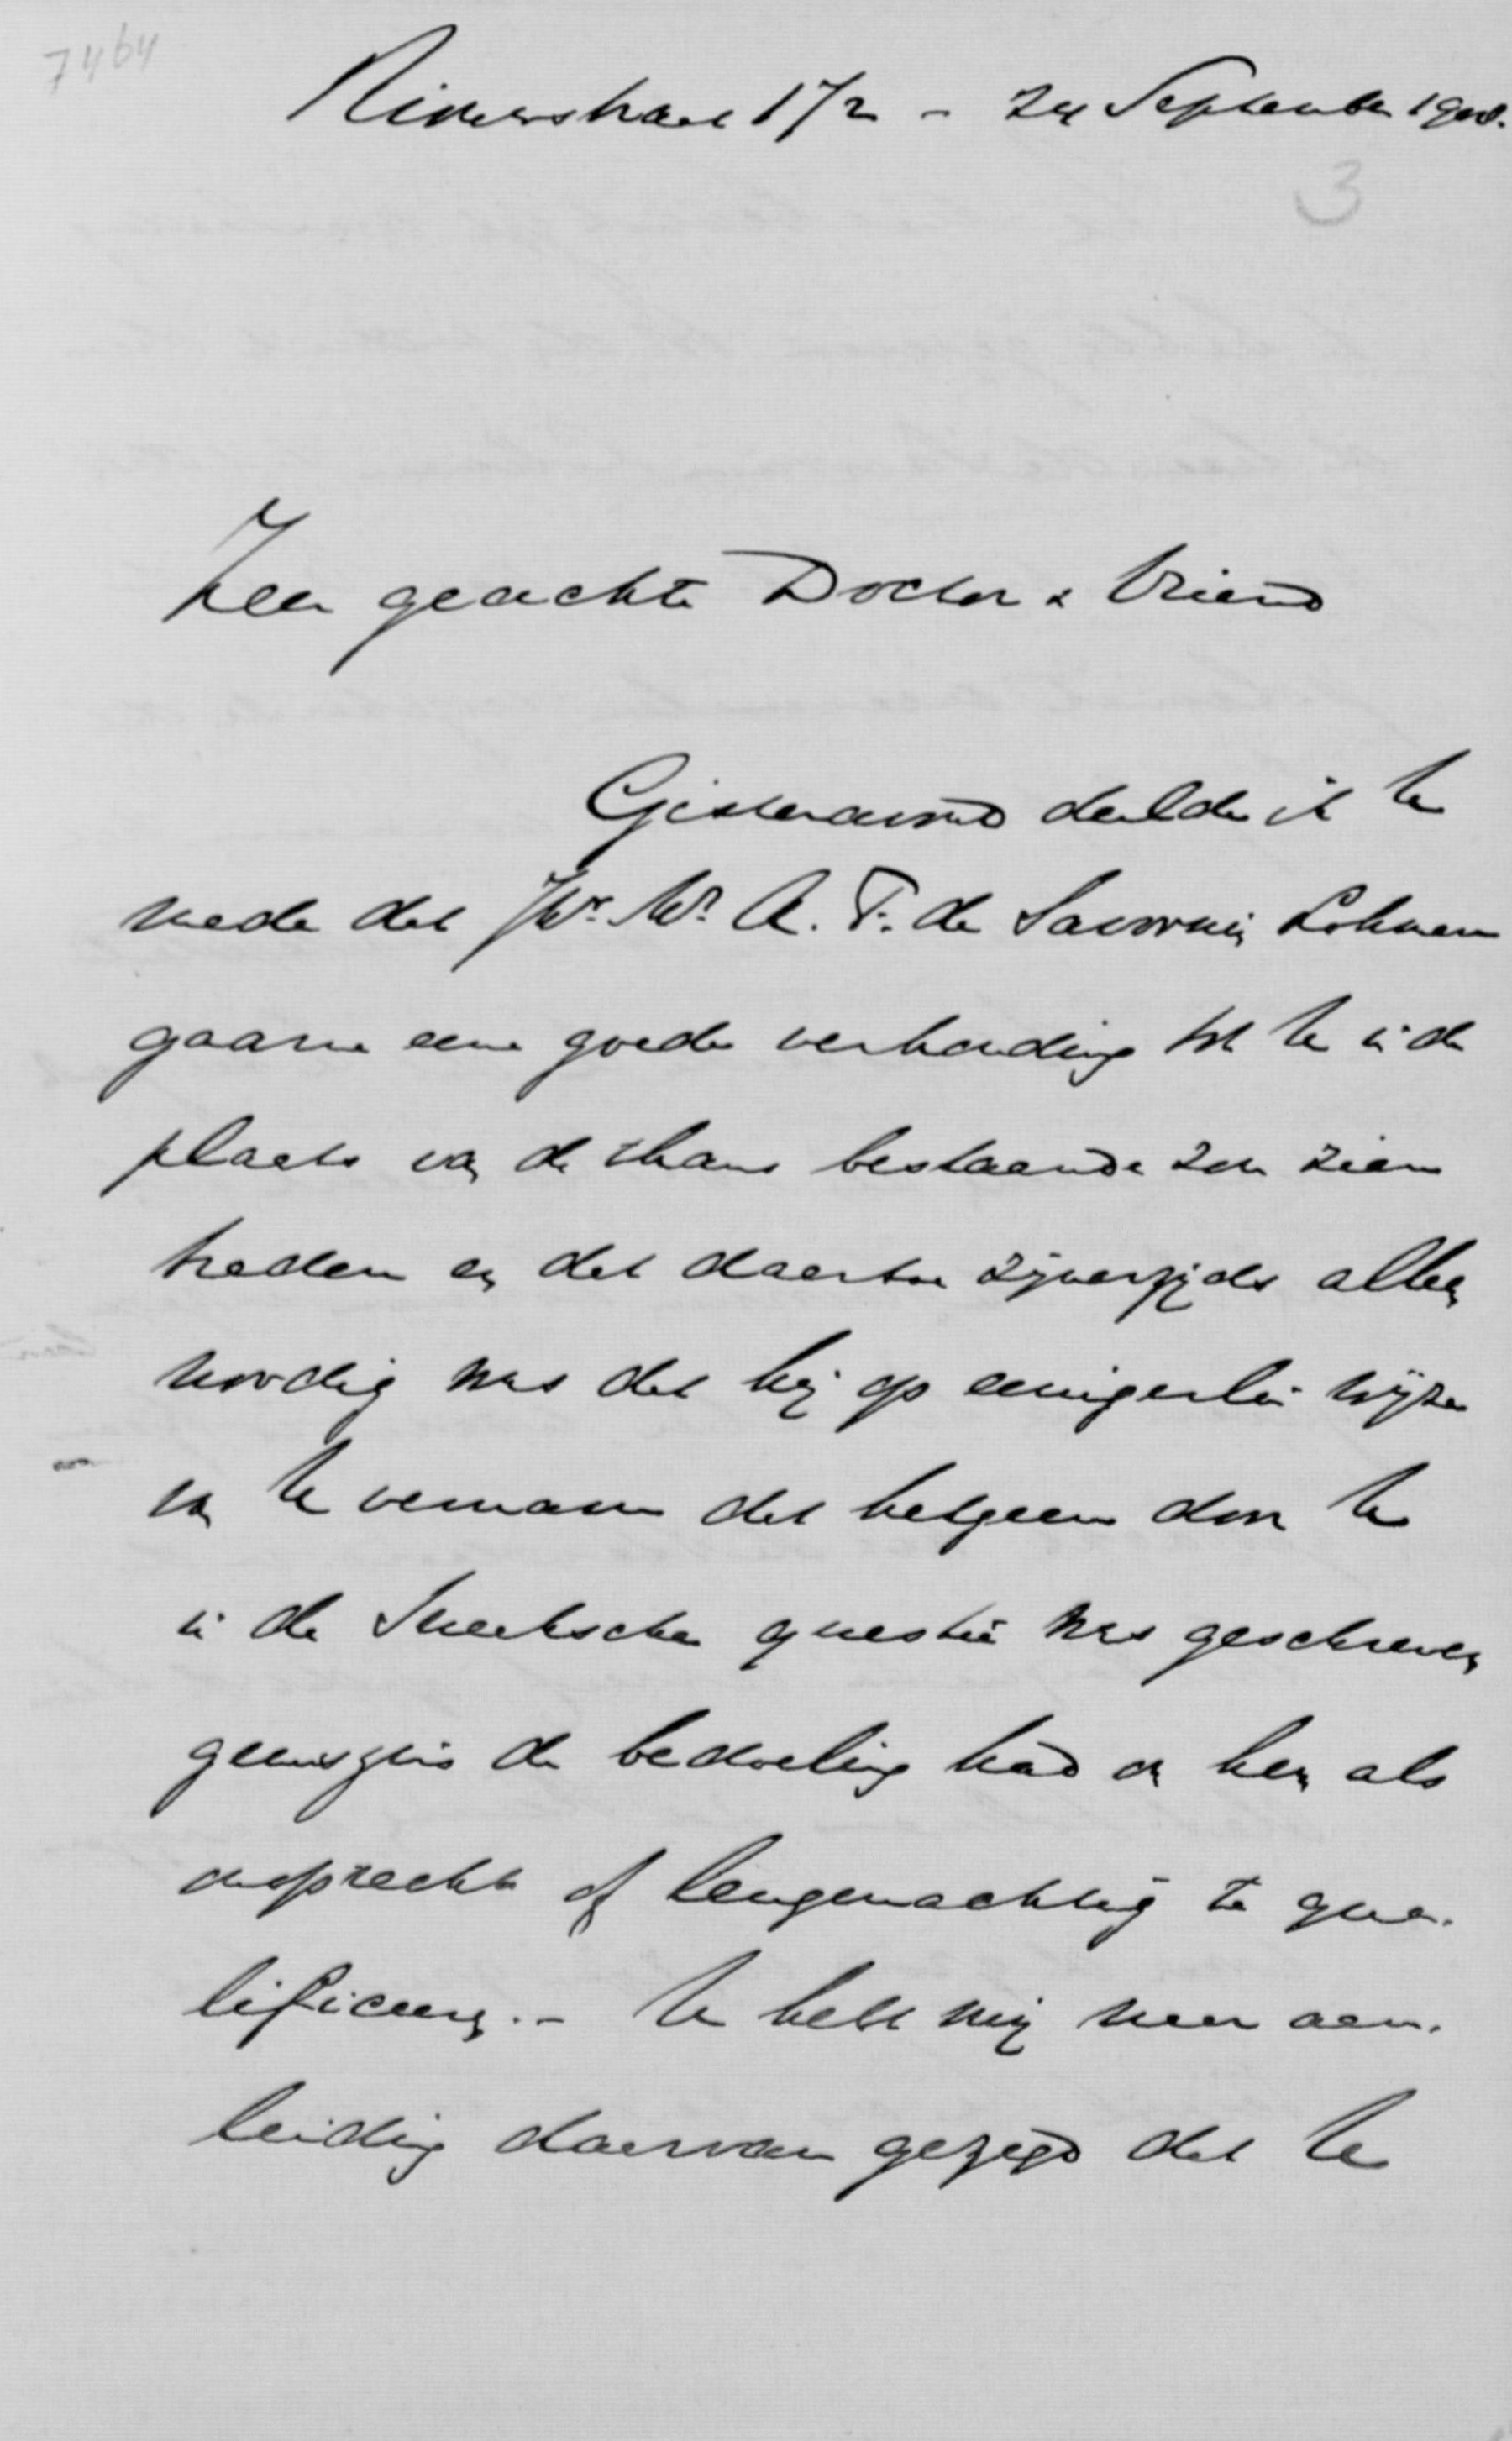 7464
Riouwstraat 172 - 24 September 1908.
3
Zeer geachte Doctor & Vriend
Gisteravond deelde ik U
mede dat Jhr. Mr. A. F. de Savornin Lohman
gaarne eene goede verhouding tot U in de
plaats van de thans bestaande zou zien
treden en dat daartoe zijnerzijds alleen
noodig was dat hij op eenigerlei wijze
van U vernam dat hetgeen door U
in de Sneeksche questie was geschreven
geenszins de bedoeling had om hem als
onoprecht of leugenachtig te qua-
lificeeren. - U hebt mij naar aan-
leiding daarvan gezegd dat U